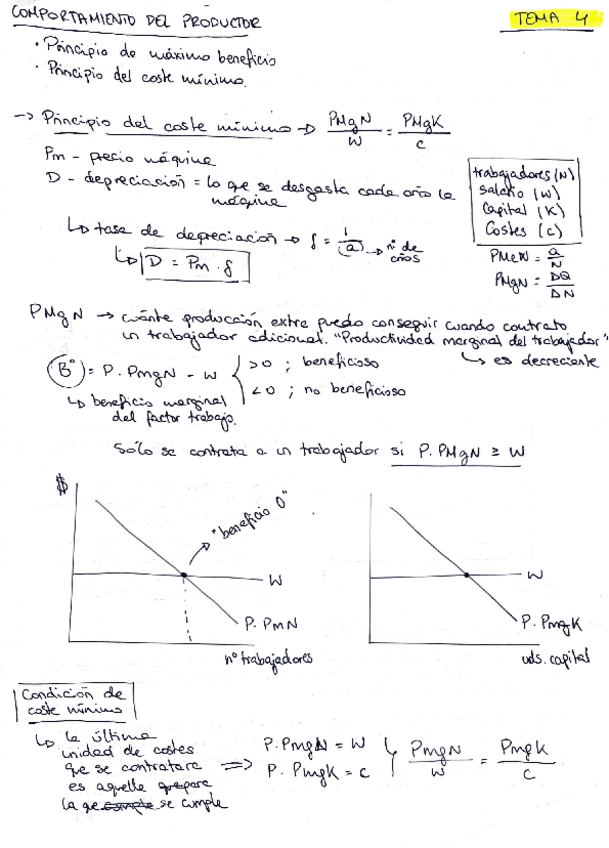 COMPORTAMIENTO DEL PRODUCTOR
TEMA 4
· Principio de máximo beneficio
· Principio del coste mínimo.
→ Principio del coste mínimo → PMgN / W = PMgK / C
Pm - precio máquina
D - depreciación = lo que se desgasta cada año la
máquina
↳ tasa de depreciación → δ = 1 / (a) → nº de
años
↳ D = Pm · δ
trabajadores (N)
salario (W)
Capital (K)
Costes (C)
PMeN = Q / N
PMgN = ΔQ / ΔN
PMgN → cuánta producción extra puedo conseguir cuando contrato
un trabajador adicional. "Productividad marginal del trabajador"
↳ es decreciente
(Bº) = P. PmgN - W { >0 ; beneficioso
<0 ; no beneficioso
↳ beneficio marginal
del factor trabajo.
Sólo se contrata a un trabajador si P. PMgN ≥ W
$
"beneficio 0"
W
P. PmN
nº trabajadores
W
P. PmgK
uds. capital
Condición de
coste mínimo
↳ la última
unidad de costes
que se contratara
es aquella
la que compte se cumple
⇒ P. PmgN = W
P. PmgK = C
PmgN / W = PmgK / C